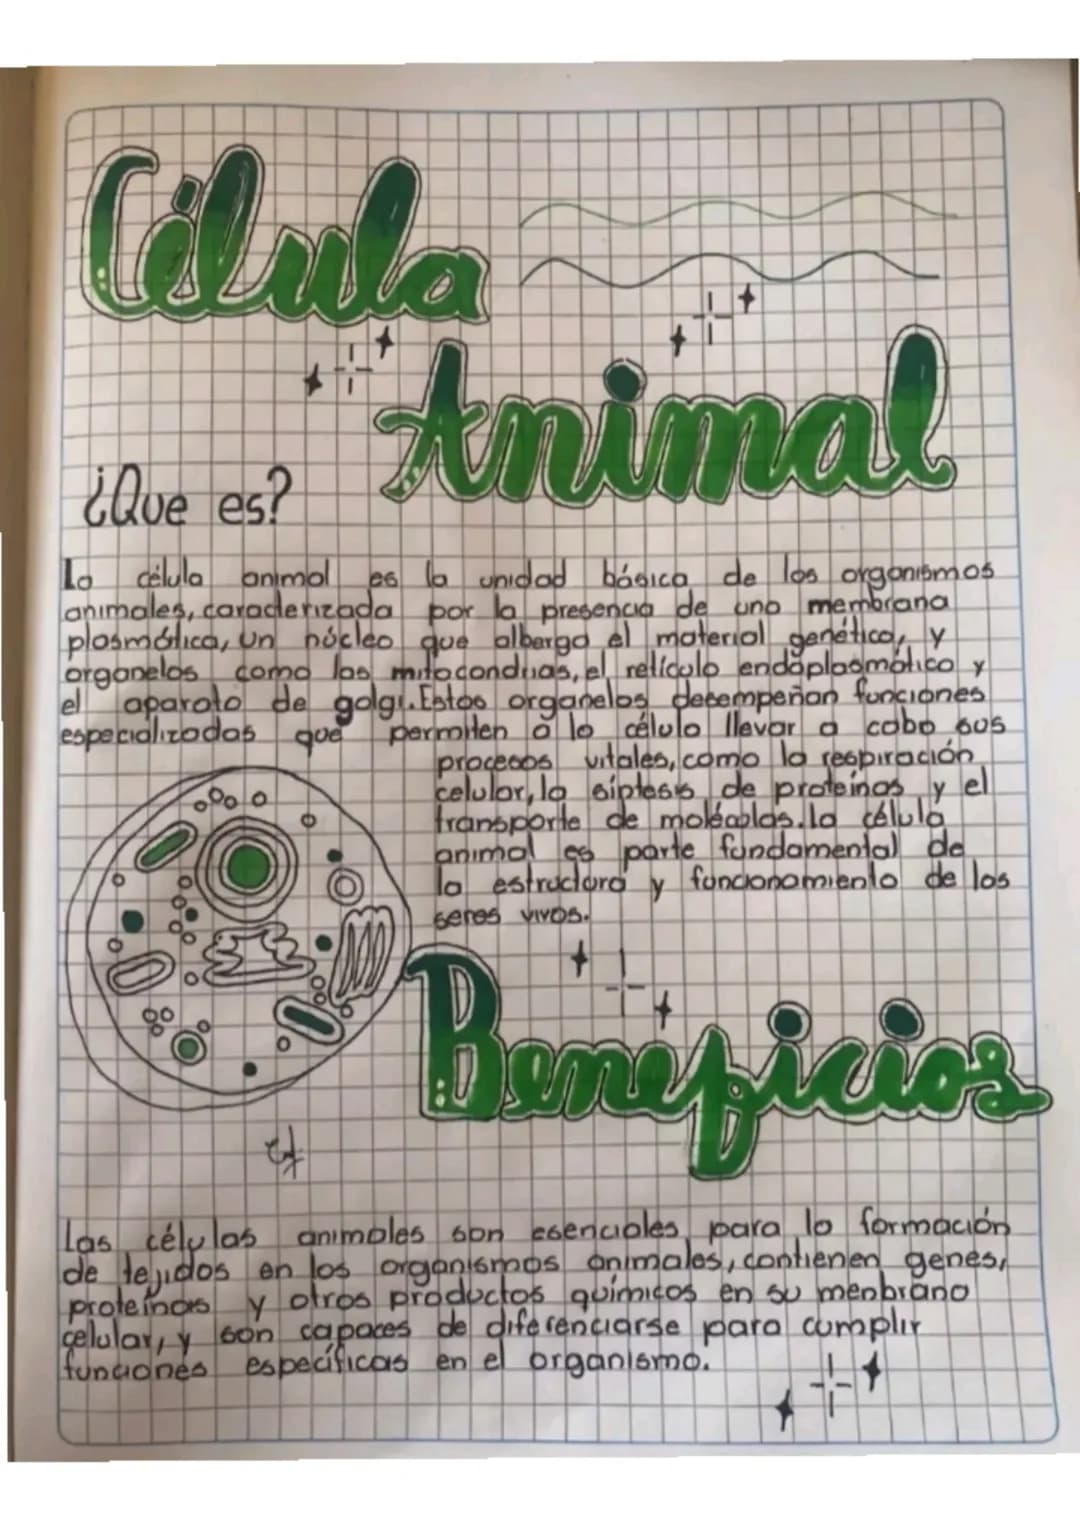 Célula
Animal
¿Que es?
La célula animal es la unidad básica de los organismos
animales, caracterizada por la presencia de una membrana
plasmática, un núcleo que alberga el material genético, y
organelos como las mitocondrias, el retículo endoplasmático y
el aparato de golgi. Estos organelos desempeñan funciones
especializadas que permiten a la célula llevar a cabo sus
procesos vitales, como la respiración
celular, la síntesis de proteínas y el
transporte de moléculas. la célula
animal es parte fundamental de
la estructura y funcionamiento de los
seres vivos.
Beneficios
Las células animales son esenciales para la formación
de tejidos en los organismos animales, contienen genes,
proteínas y otros productos químicos en su menbrana
celular, y son capaces de diferenciarse para cumplir
funciones específicas en el organismo.